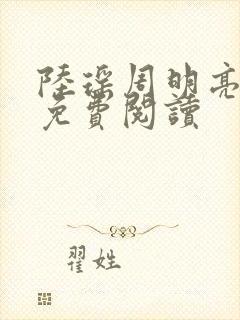 陸琛周明亮
免費閱讀
翟姓